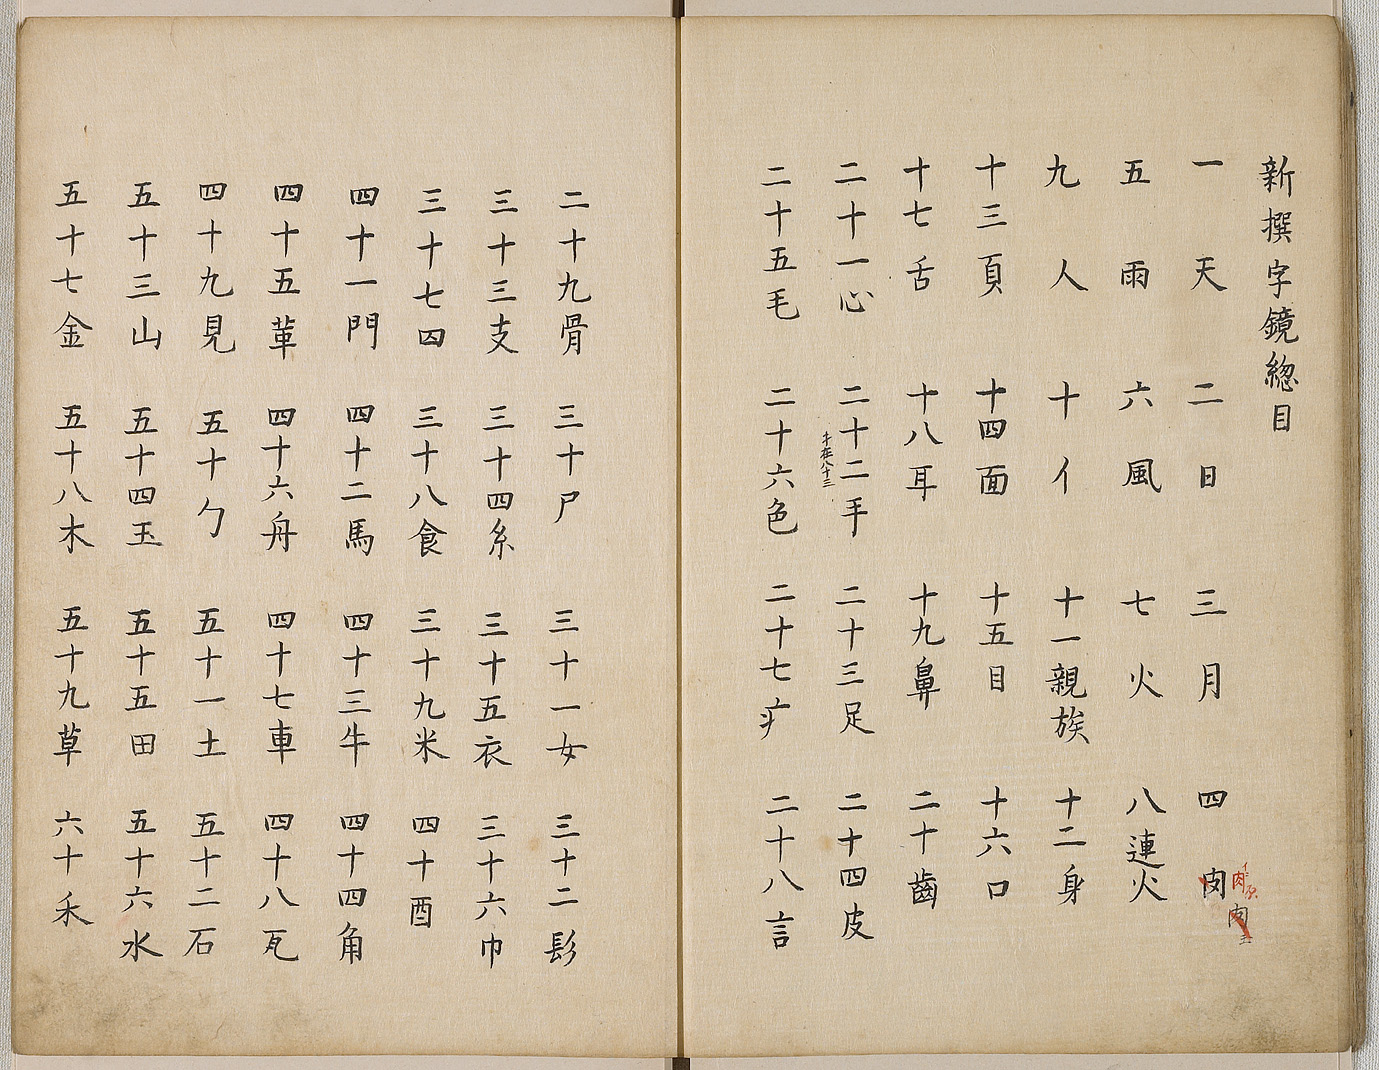 新撰字鏡総目
一天 二日 三月 四肉
五雨 六風 七火 八連火
九人 十亻 十一親族 十二身
十三頁 十四面 十五目 十六口
十七舌 十八耳 十九鼻 二十齒
二十一心 二十二手 二十三足 二十四皮
扌在八十三
二十五毛 二十六色 二十七疒 二十八言
二十九骨 三十尸 三十一女 三十二髟
三十三支 三十四糸 三十五衣 三十六巾
三十七囚 三十八食 三十九米 四十酉
四十一門 四十二馬 四十三牛 四十四角
四十五革 四十六舟 四十七車 四十八瓦
四十九見 五十勹 五十一土 五十二石
五十三山 五十四玉 五十五田 五十六水
五十七金 五十八木 五十九草 六十禾